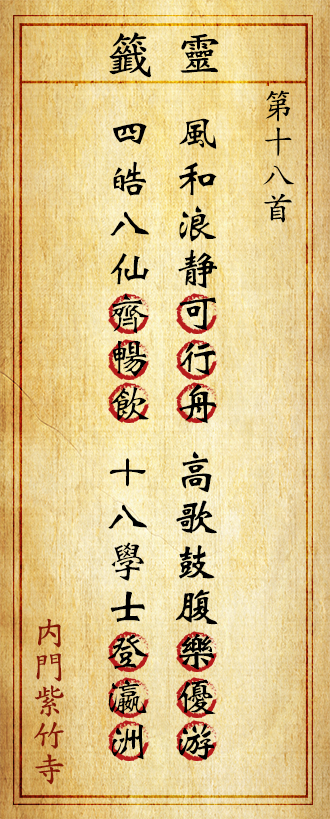 靈籤
第十八首
風和浪静可行舟 高歌鼓腹樂優游
四皓八仙齊暢飲 十八學士登瀛洲
内門紫竹寺